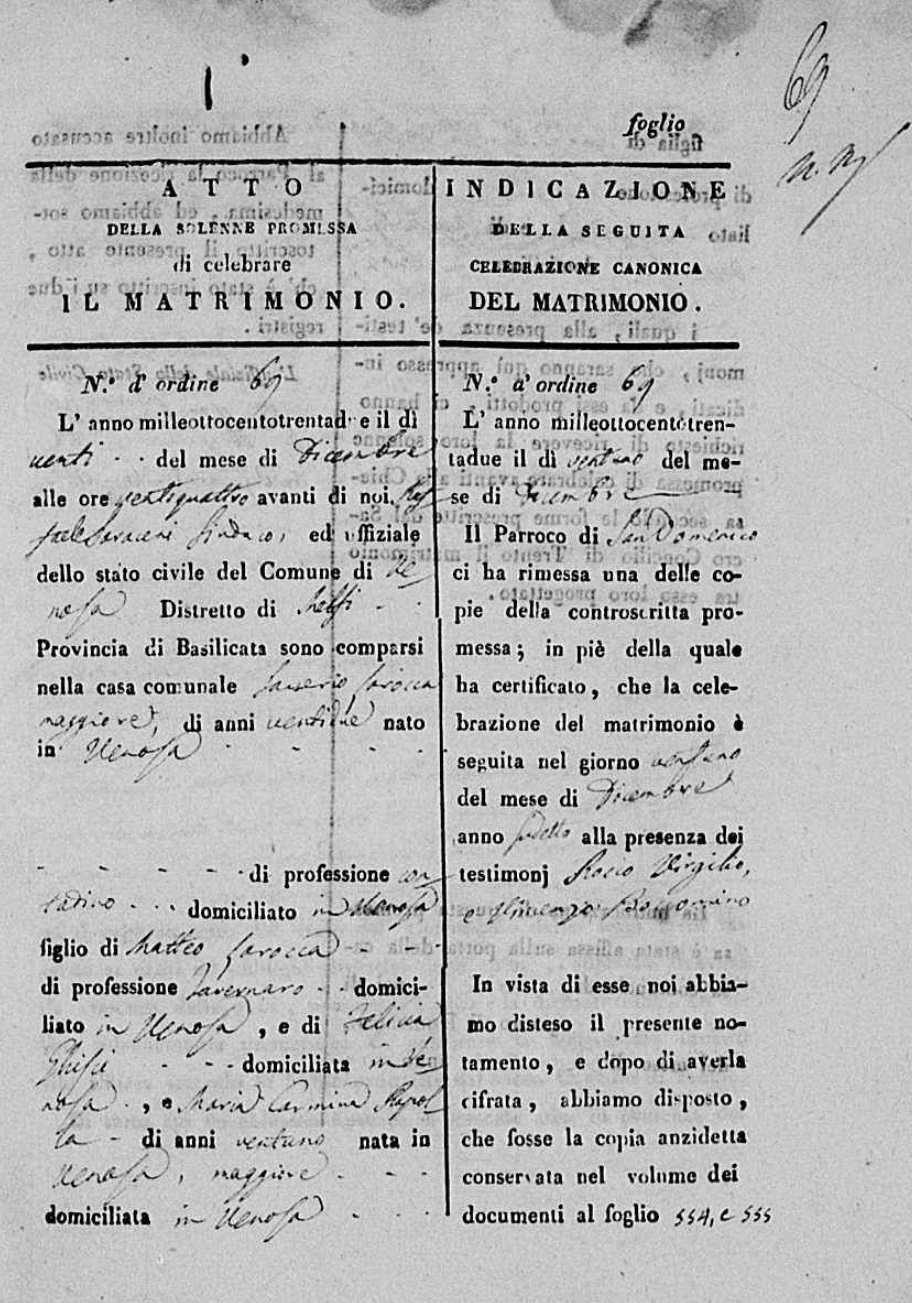 69
foglio
ATTO
DELLA SOLENNE PROMESSA
di celebrare
IL MATRIMONIO.
N.° d' ordine 69
L' anno milleottocentotrentadue il dì
venti - - del mese di Dicembre
alle ore ventiquattro avanti di noi Raf-
faele Saraceni Sindaco, ed uffiziale
dello stato civile del Comune di Ve-
nosa Distretto di Melfi - -
Provincia di Basilicata sono comparsi
nella casa comunale Saverio Larocca
maggiore, di anni ventidue nato
in Venosa - - - -
- - - - - di professione con-
tadino - - - domiciliato in Venosa
figlio di Matteo Larocca - - -
di professione Tavernaro - - domici-
liato in Venosa, e di Felicia
- - - domiciliata in Ve-
nosa - , e Maria Carmina Rapol-
la - di anni ventuno nata in
Venosa, maggiore - - -
domiciliata in Venosa - - -
INDICAZIONE
DELLA SEGUITA
CELEBRAZIONE CANONICA
DEL MATRIMONIO.
N.° d' ordine 69
L' anno milleottocentotren-
tadue il dì ventuno del me-
se di Dicembre
Il Parroco di San Domenico
ci ha rimessa una delle co-
pie della controscritta pro-
messa; in piè della quale
ha certificato, che la cele-
brazione del matrimonio è
seguita nel giorno ventuno
del mese di Dicembre
anno sudetto alla presenza dei
testimonj Rocco Virgilio,
e
In vista di esse noi abbia-
mo disteso il presente no-
tamento, e dopo di averla
cifrata, abbiamo disposto,
che fosse la copia anzidetta
conservata nel volume dei
documenti al foglio 554, e 555